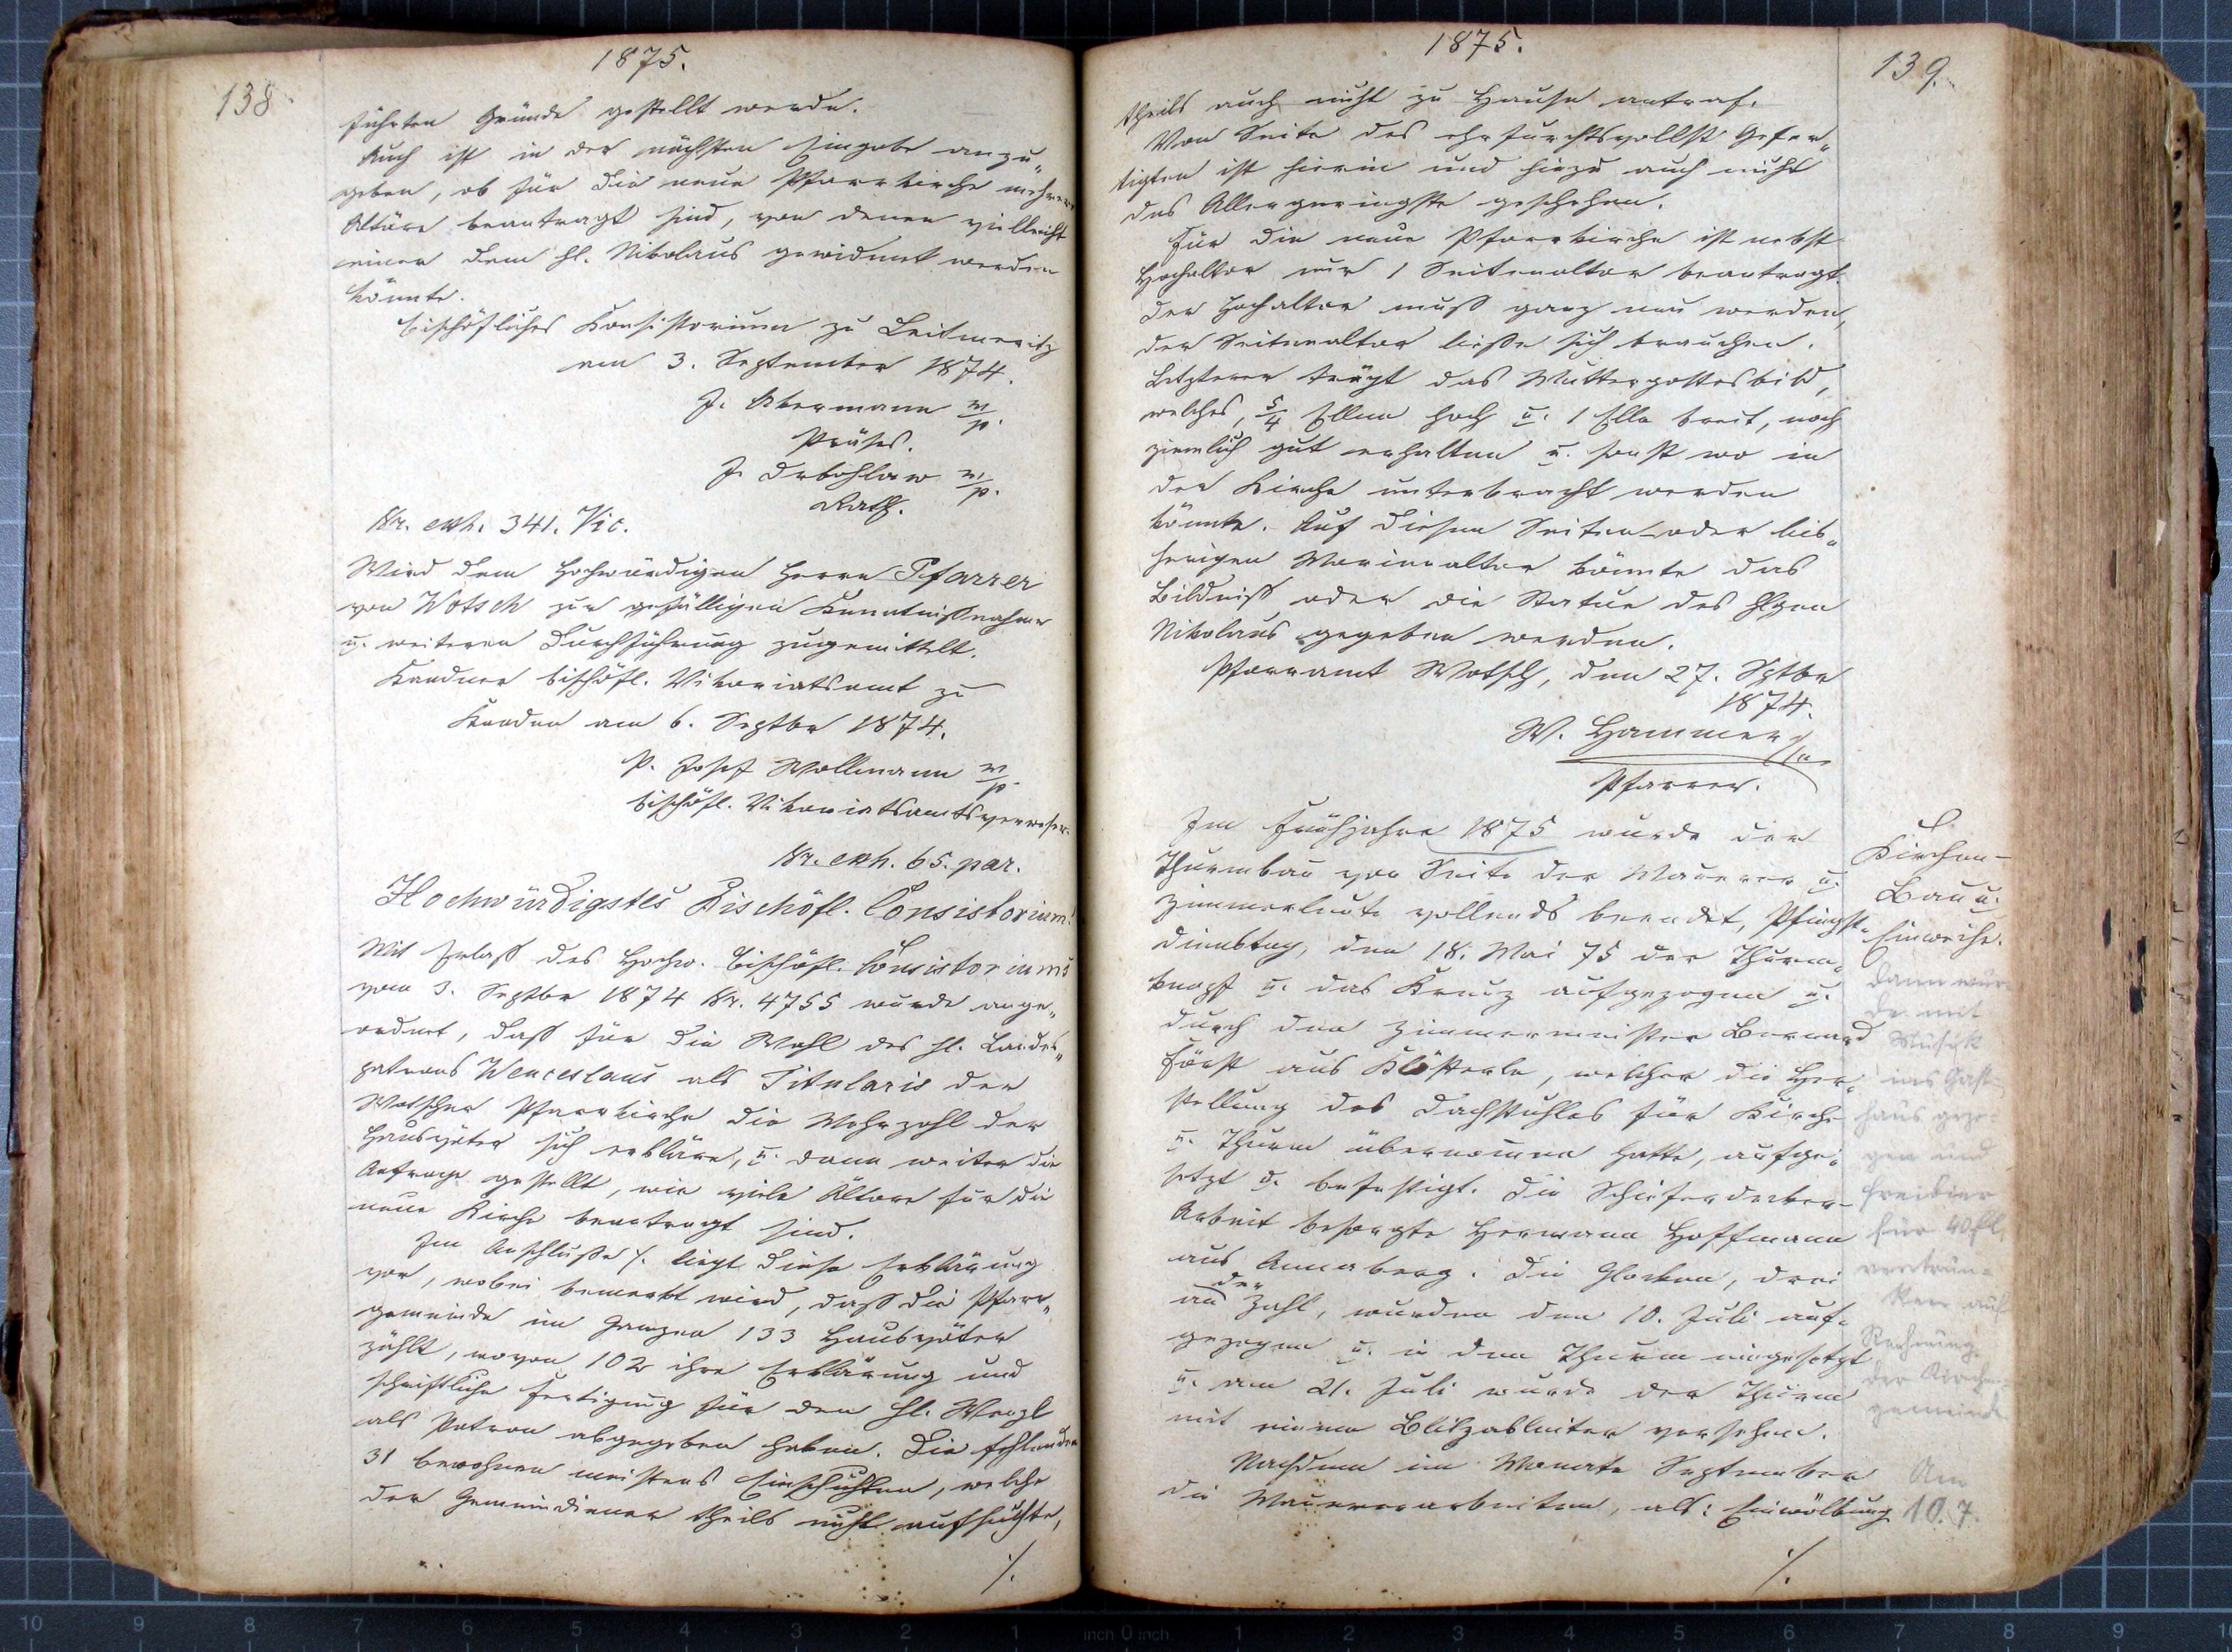 138
1875.
führten Gründe gestellt werde.
Auch ist in der nächsten Eingabe anzu„
geben, ob für die neue Pfarrkirche mehrere
Altäre beantragt sind, von denen vielleicht
einer dem hl. Nikolaus gewidmet werden
könnte.
Bischöfliches Konsistorium zu Leitmeritz
am 3. September 1874.
J. Abermann m/p.
Präses.
J. Drbohlaw m/p.
Rath.
Nr. exh. 341. Vic.
Wird dem hochwürdigen Herrn Pfarrer
von Wotsch zur gefälligen Kenntnißnahme
u. weiteren Durchführung zugemittelt.
Kaadner bischöfl. Vikariatsamt zu
Kaaden am 6. Septbr 1874.
P. Josef Wollmann m/p.
bischöfl. Vikariatsamtsverweser.
Nr. exh. 65. par.
Hochwürdigstes Bischöfl. Consistorium!
Mit Erlaß des Hochw. bischöfl. Consistoriums
vom 3. Septbr 1874 Nr. 4755 wurde ange„
ordnet, daß für die Wahl des hl. Landes„
patrons Wenceslaus als Titularis der
Wotscher Pfarrkirche die Mehrzahl der
Hausväter sich erkläre, u. dann weiter die
Anfrage gestellt, wie viele Altäre für die
neue Kirche beantragt sind.
Im Anschluße ⁒ liegt diese Erklärung
vor, wobei bemerkt wird, daß die Pfarr„
gemeinde im Ganzen 133 Hausväter
zählt, wovon 102 ihre Erklärung und
schriftliche Fertigung für den hl. Wenzl
als Patron abgegeben haben. Die fehlenden
31 bewohnen meistens Einschichten, welche
der Gemeindiener theils nicht aufsuchte,
⁒
1875.
139.
theils auch nicht zu Hause antraf.
Von Seite des ehrfurchtsvollst Gefer„
tigten ist hierin und hiezu auch nicht
das Allergeringste geschehen.
Für die neue Pfarrkirche ist nebst
Hochaltar nur 1 Seitenaltar beantragt.
Der Hochaltar muß ganz neu werden,
der Seitenaltar ließe sich brauchen.
Letzterer trägt das Muttergottesbild,
welches, 5/4 Ellen hoch u. 1 Elle breit, noch
ziemlich gut erhalten u. sonst wo in
der Kirche unterbracht werden
könnte. Auf diesen Seiten- oder bis„
herigen Marienaltar könnte das
Bildniß oder die Statue des hlgen
Nikolaus gegeben werden.
Pfarramt Wotsch, den 27. Sptbr
1874.
W. Hammer
Pfarrer.
Im Frühjahre 1875 wurde der
Thurmbau von Seite der Maurer u.
Zimmerleute vollends beendet, Pfingst-
dienstag, den 18. Mai 75 der Thurm„
knopf u. das Kreuz aufgezogen u.
durch den Zimmermeister Bernard
Hörst aus Klösterle, welcher die Her„
stellung des Dachstuhles für Kirche
u. Thurm übernommen hatte, aufge„
setzt u. befestigt. Die Schieferdecker-
Arbeit besorgte Hermann Hoffmann
aus Annaberg. Die Glocken, drei
an der Zahl, wurden den 10. Juli auf-
gezogen u. in den Thurm eingesetzt
u. am 21. Juli wurde der Thurm
mit einem Blitzableiter versehen.
Nachdem im Monate September
die Maurerarbeiten, als: Einwölbung
⁒
Kirchen-
Bau u.
Einweihe.
Dann wur-
de mit
Musik
ins Gast-
haus gezo-
gen und
Freibier
für 40 fl.
vertrun-
ken auf
Rechnung
der Kirchen-
gemeinde
Am
10.7.